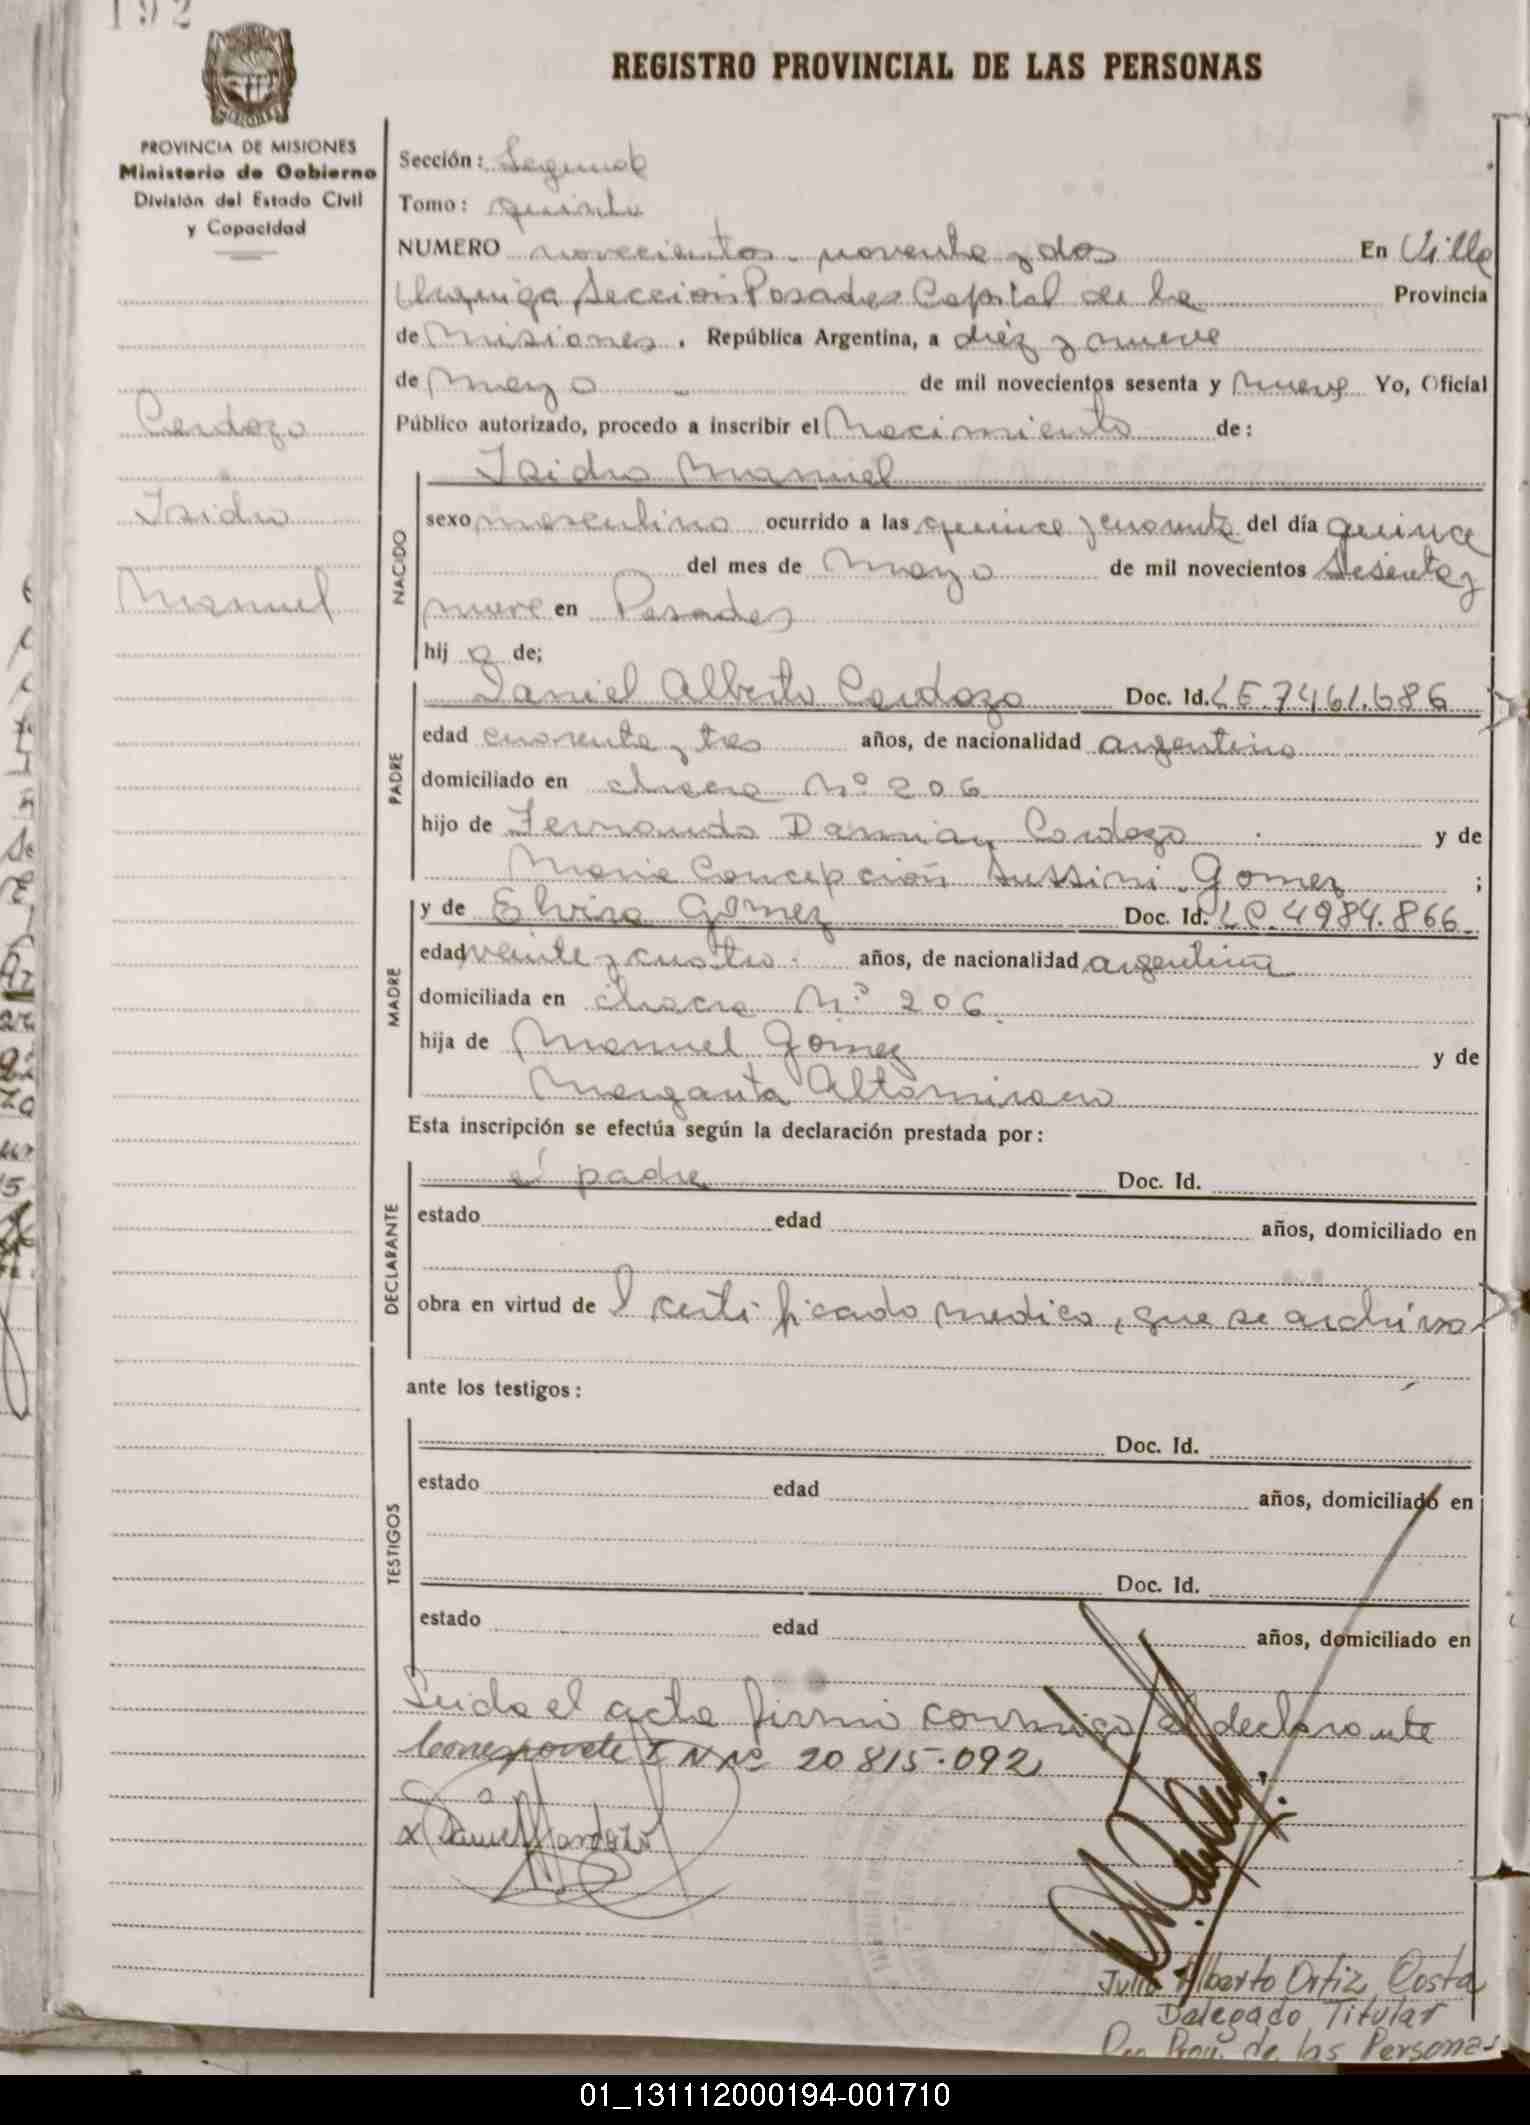 192
REGISTRO PROVINCIAL DE LAS PERSONAS
PROVINCIA DE MISIONES
Ministerio de Gobierno
División del Estado Civil
y Capacidad
Cardozo
Isidro
Manuel
Sección: Segunda
Tomo: quinto
NUMERO novecientos noventa y dos En Villa
Urquiza Sección Posadas Capital de la Provincia
de Misiones. República Argentina, a diez y nueve
de Mayo de mil novecientos sesenta y nueve Yo, Oficial
Público autorizado, procedo a inscribir el Nacimiento de:
Isidro Manuel
NACIDO
sexo masculino ocurrido a las quince y cuarenta del día quince
del mes de Mayo de mil novecientos sesenta y
nueve en Posadas
hij o de;
PADRE
Daniel Alberto Cardozo Doc. Id. LE.7461.686
edad cuarenta y tres años, de nacionalidad argentino
domiciliado en chacra Nº 206
hijo de Fernando Damian Cardozo y de
Maria Concepción Sussini Gomez ;
MADRE
y de Elvira Gomez Doc. Id. LC.4984.866
edad veinte y cuatro años, de nacionalidad argentina
domiciliada en chacra Nº 206
hija de Manuel Gomez y de
Margarita Altamirano
Esta inscripción se efectúa según la declaración prestada por:
DECLARANTE
el padre Doc. Id.
estado edad años, domiciliado en
obra en virtud de l certificado medico, que se archiva
ante los testigos:
TESTIGOS
Doc. Id.
estado edad años, domiciliado en
Doc. Id.
estado edad años, domiciliado en
Leida el acta firma conmigo el declarante
Corresponde I N Nº 20 815.092
x Daniel A Cardozo
Julio Alberto Ortiz Costa
Delegado Titular
Reg Prov. de las Personas
01_131112000194-001710